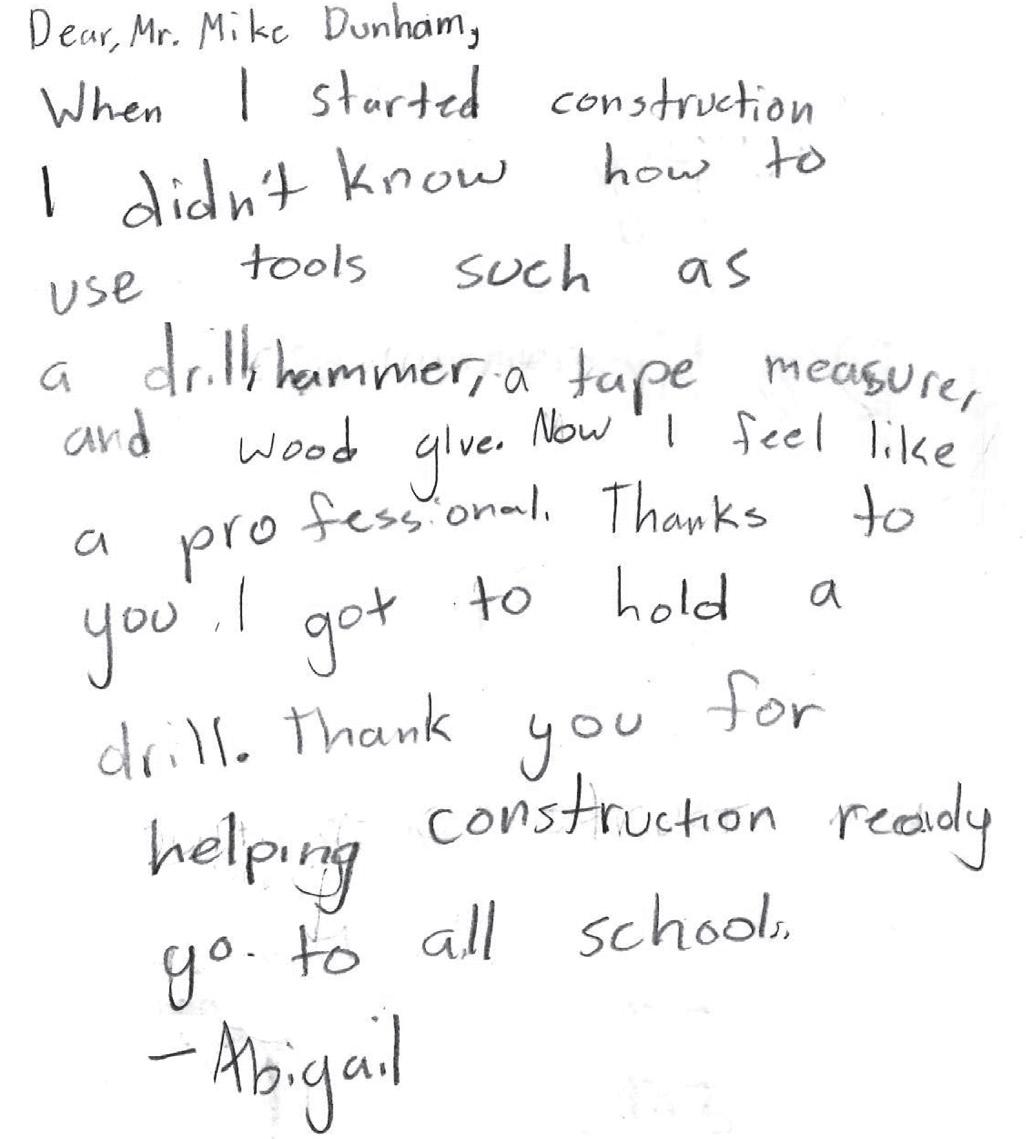 Dear, Mr. Mike Dunham,
When I started construction
I didn't know how to
use tools such as
a drill, hammer, a tape measure,
and wood glue. Now I feel like
a professional. Thanks to
you I got to hold a
drill. Thank you for
helping construction ready
go to all schools.
- Abigail